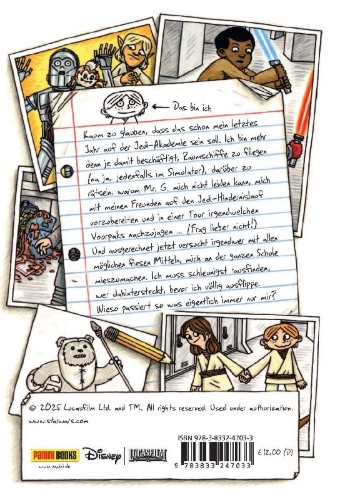 Das bin ich
Kaum zu glauben, dass das schon mein letztes
Jahr auf der Jedi-Akademie sein soll. Ich bin mehr
denn je damit beschäftigt, Raumschiffe zu fliegen
(na ja, jedenfalls im Simulator), darüber zu
rätseln, warum Mr. G. mich nicht leiden kann, mich
mit meinen Freunden auf den Jedi-Hindernislauf
vorzubereiten und in einer Tour irgendwelchen
Voorpaks nachzujagen ... (Frag lieber nicht!)
Und ausgerechnet jetzt versucht irgendwer mit allen
möglichen fiesen Mitteln, mich an der ganzen Schule
mieszumachen. Ich muss schleunigst rausfinden,
wer dahintersteckt, bevor ich völlig ausflippe.
Wieso passiert so was eigentlich immer nur mir?
© 2025 Lucasfilm Ltd. and TM. All rights reserved. Used under authorization.
www.starwars.com
PANINI BOOKS
Disney
LUCASFILM
www.panini.de
ISBN 978-3-8332-4703-3
9 783833 247033
€ 12,00 (D)